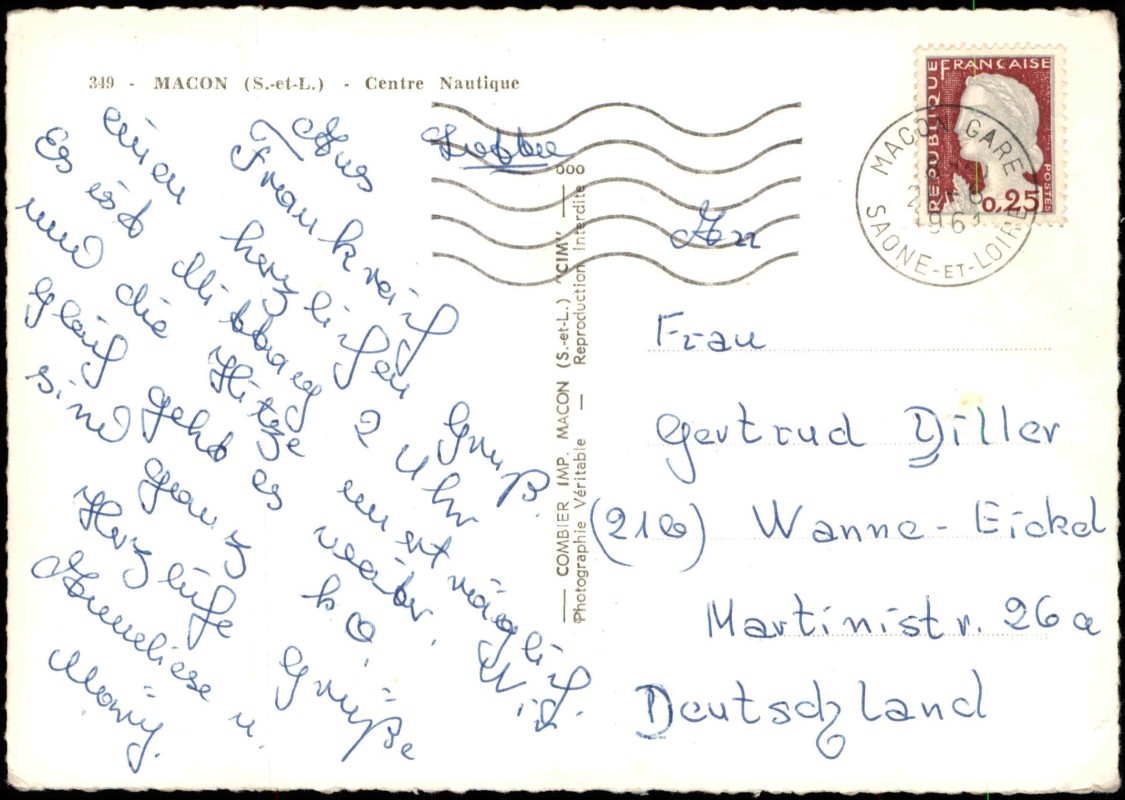 349 - MACON (S.-et-L.) - Centre Nautique
Aus Frankreich
einen herzlichen Gruß.
Es ist Mittag 2 Uhr
und die Hitze unerträglich.
Gleich geht es weiter. Wir
sind ganz k.o.
Herzliche Grüße
Anneliese u.
COMBIER IMP. MACON (S.-et-L.) "CIM"
Photographie Véritable — Reproduction interdite
RÉPUBLIQUE FRANÇAISE
0,25
POSTES
MACON GARE
SAONE-ET-LOIRE
An
Frau
Gertrud Diller
Wanne-Eickel
Martinistr. 26a
Deutschland